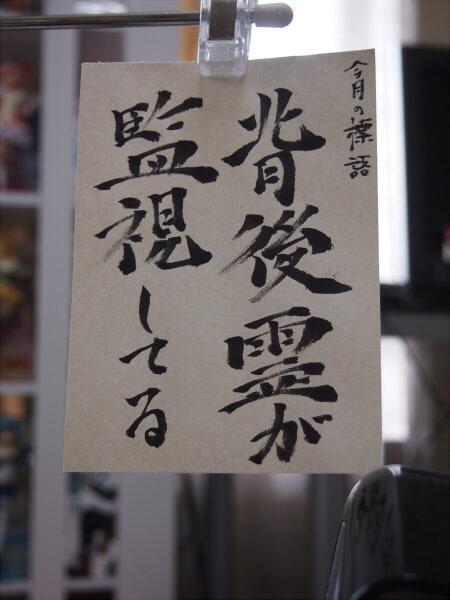 今月の標語
背後霊が
監視してる